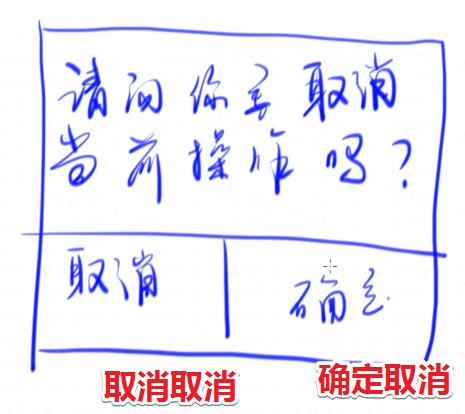 请问你要取消
当前操作吗？
取消
确定
取消取消
确定取消